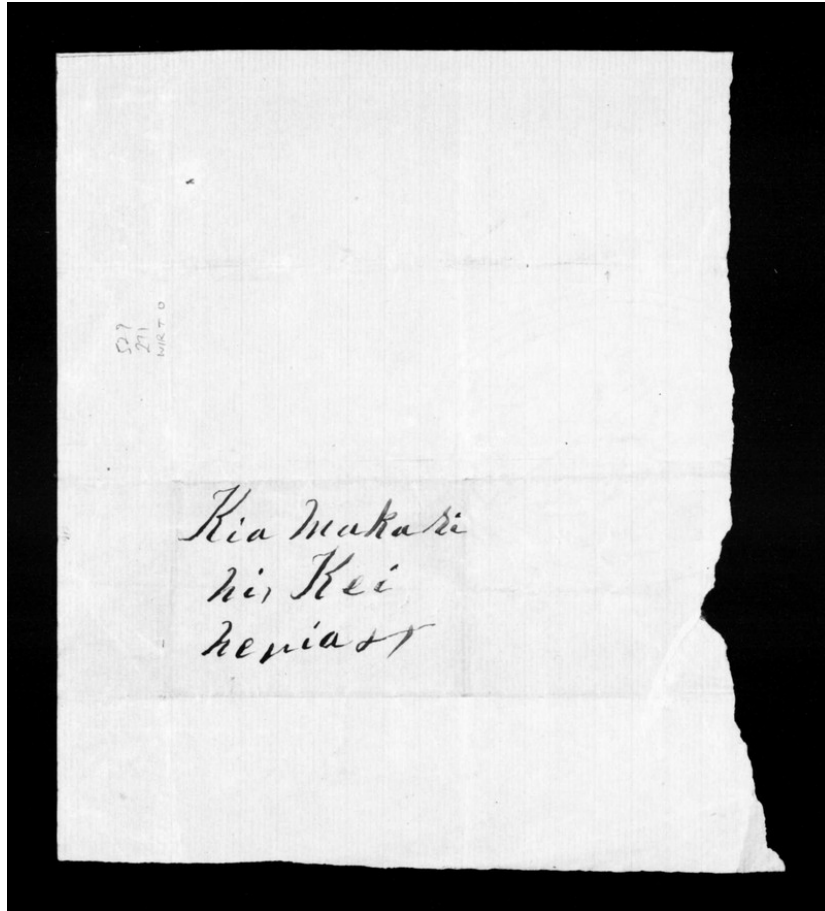 527
271
WIRT O
Kia Makari
ni, Kei
nepia